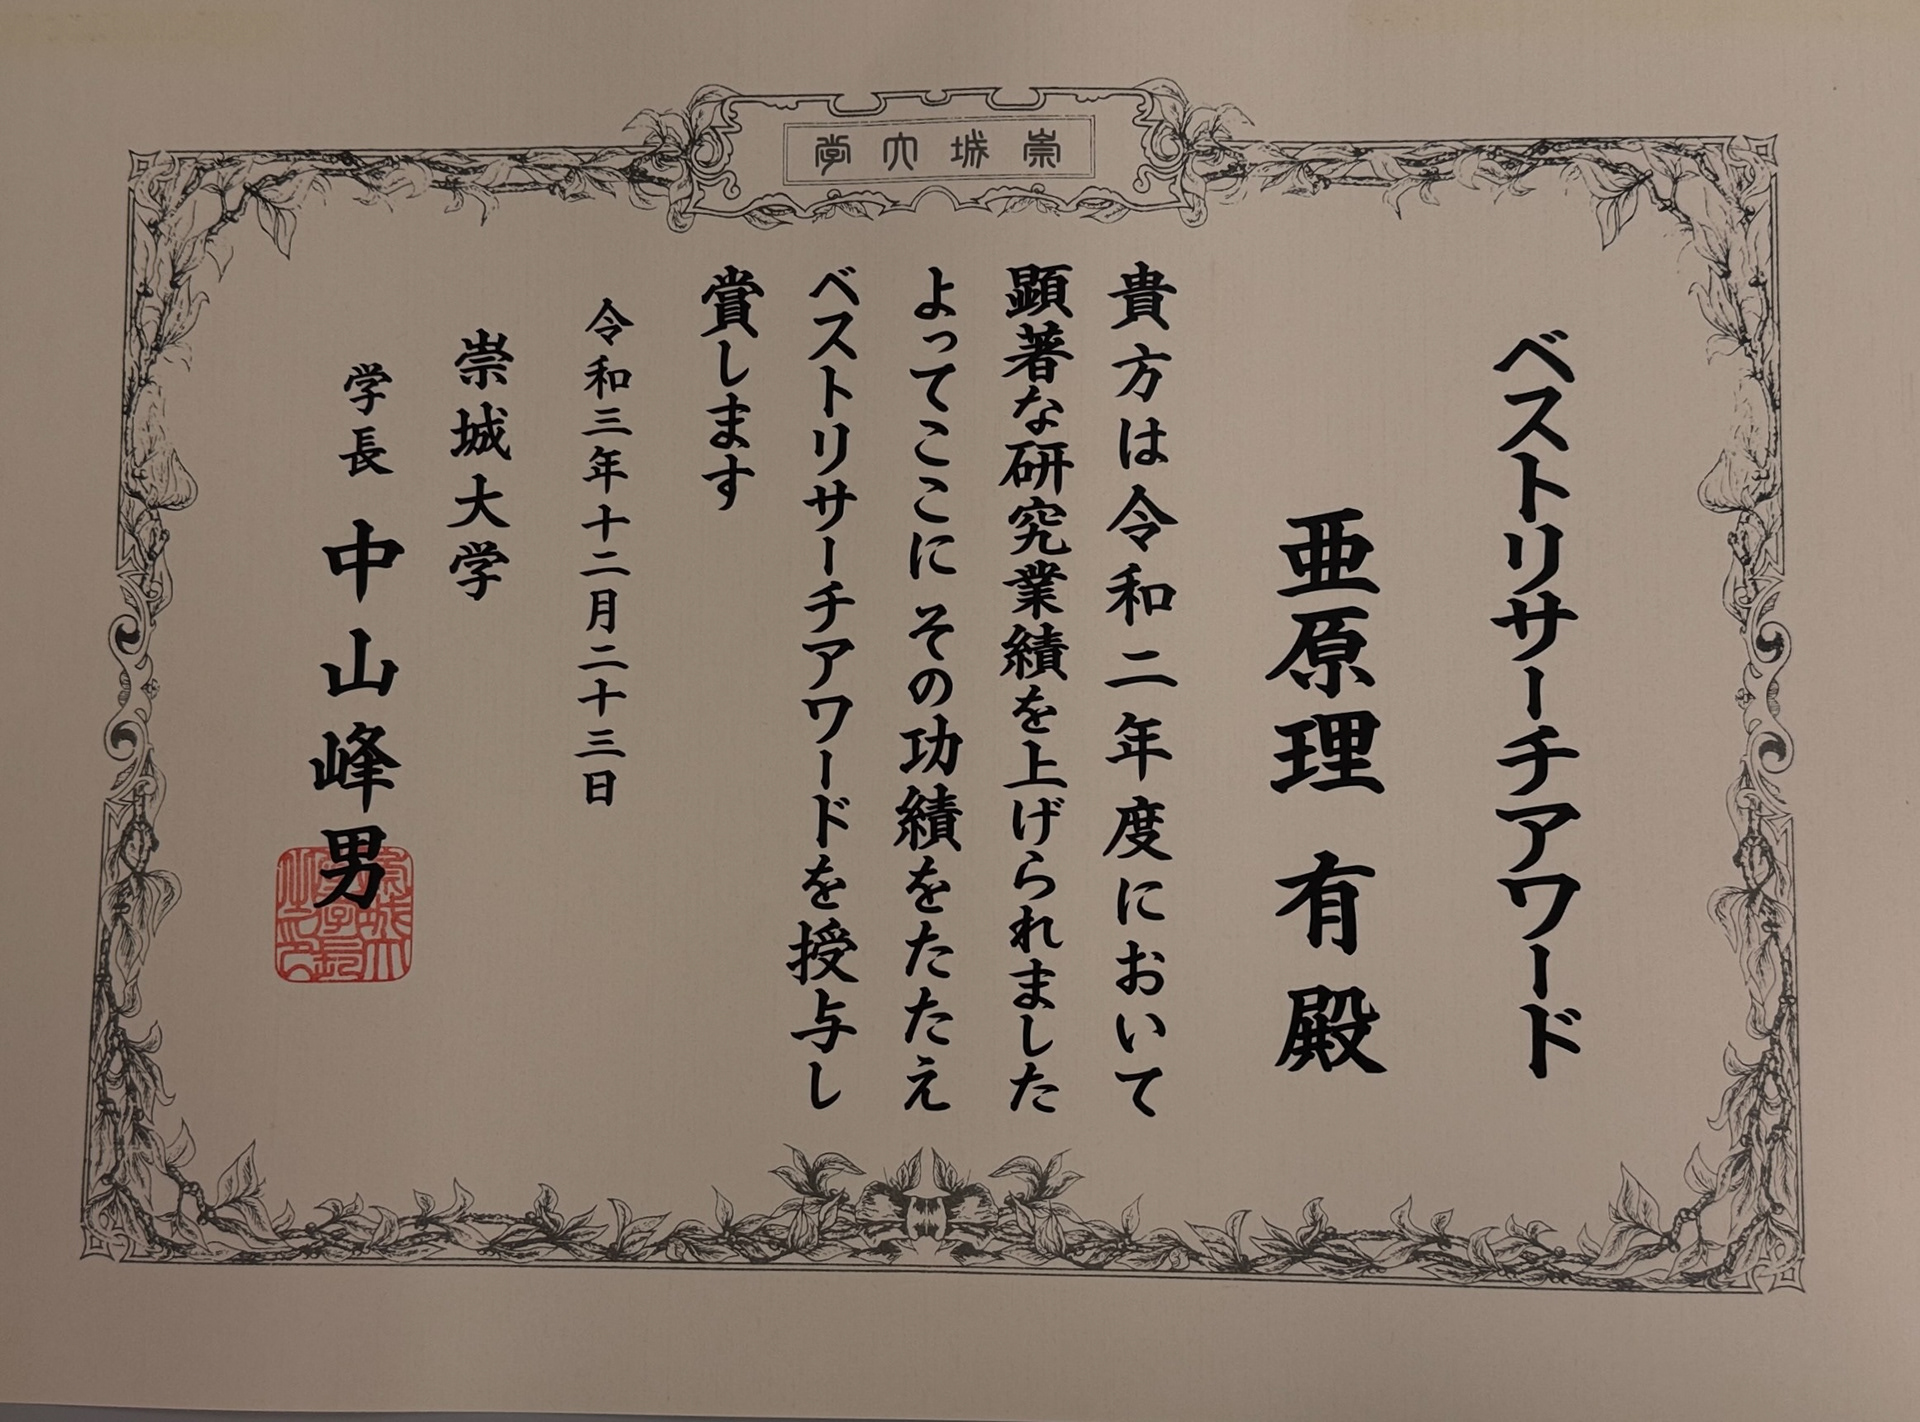 崇城大学
ベストリサーチアワード
亜原理 有 殿
貴方は令和二年度において
顕著な研究業績を上げられました
よってここに その功績をたたえ
ベストリサーチアワードを授与し
賞します
令和三年十二月二十三日
崇城大学
学長 中山峰男